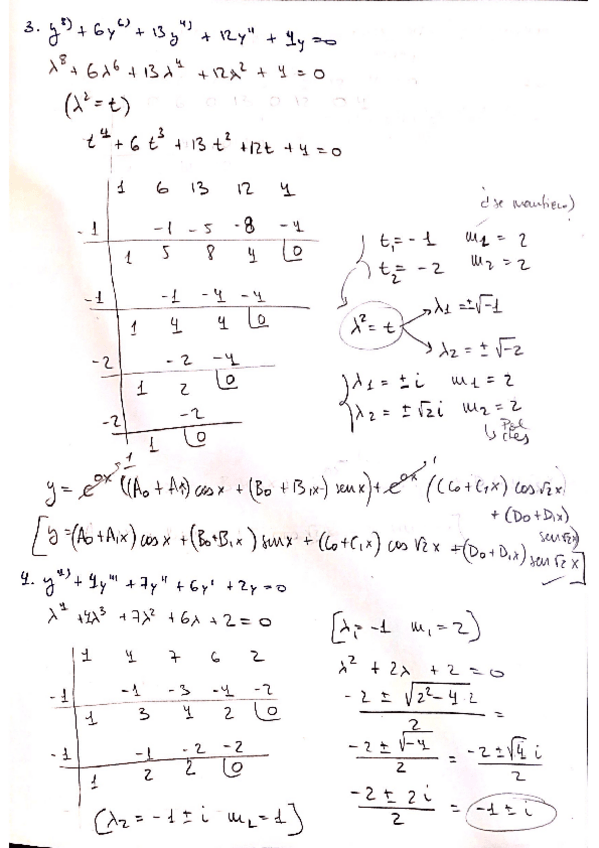 3. y⁸⁾ + 6y⁶⁾ + 13y⁴⁾ + 12y'' + 4y = 0
λ⁸ + 6λ⁶ + 13λ⁴ + 12λ² + 4 = 0
(λ² = t)
t⁴ + 6t³ + 13t² + 12t + 4 = 0
1 6 13 12 4
-1 -1 -5 -8 -4
1 5 8 4 0
-1 -1 -4 -4
1 4 4 0
-2 -2 -4
1 2 0
-2 -2
1 0
(se mantiene)
t₁ = -1 m₁ = 2
t₂ = -2 m₂ = 2
λ² = t
λ₁ = ±√-1
λ₂ = ±√-2
λ₁ = ±i m₁ = 2
λ₂ = ±√2i m₂ = 2
y = e⁰ˣ ((A₀ + A₁x) cos x + (B₀ + B₁x) sen x) + e⁰ˣ ((C₀ + C₁x) cos √2 x
1 1
+ (D₀ + D₁x)
sen √2 x)
[y = (A₀ + A₁x) cos x + (B₀ + B₁x) sen x + (C₀ + C₁x) cos √2 x + (D₀ + D₁x) sen √2 x]
4. y⁴⁾ + 4y''' + 7y'' + 6y' + 2y = 0
λ⁴ + 4λ³ + 7λ² + 6λ + 2 = 0
1 4 7 6 2
-1 -1 -3 -4 -2
1 3 4 2 0
-1 -1 -2 -2
1 2 2 0
(λ₂ = -1 ± i m₂ = 1)
[λ₁ = -1 m₁ = 2)
λ² + 2λ + 2 = 0
-2 ± √2² - 4·2 / 2 =
-2 ± √-4 / 2 = -2 ± √4 i / 2
-2 ± 2i / 2 = -1 ± i